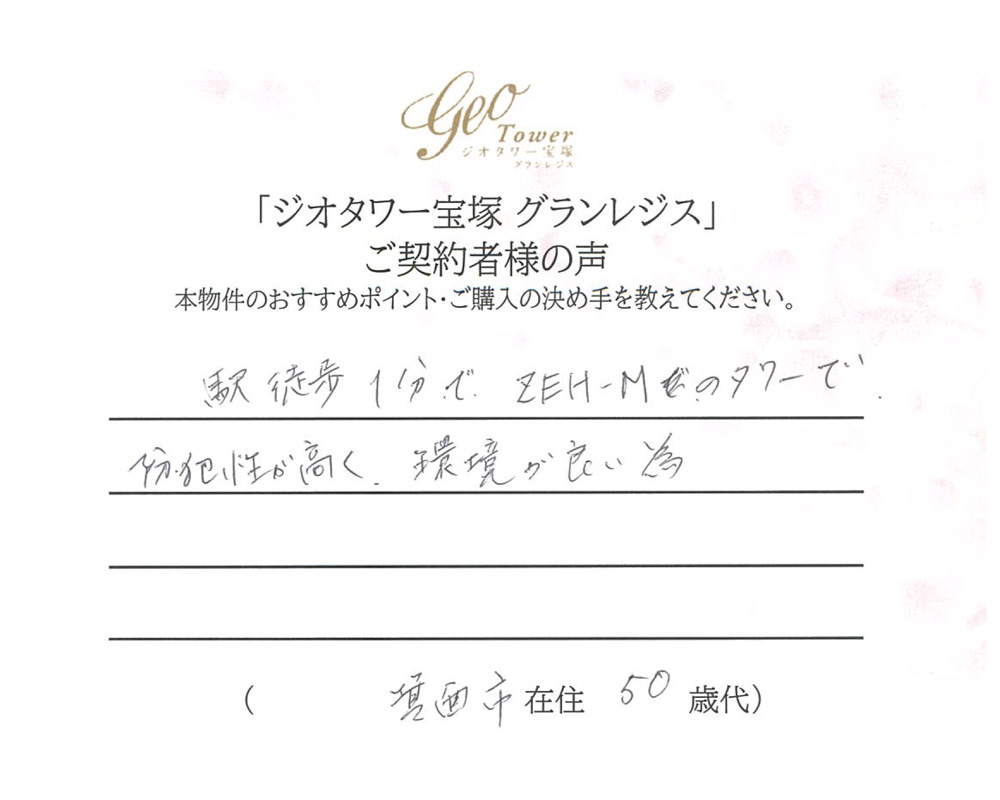 Geo
Tower
ジオタワー宝塚
グランレジス
「ジオタワー宝塚 グランレジス」
ご契約者様の声
本物件のおすすめポイント・ご購入の決め手を教えてください。
駅徒歩1分で ZEH-M のタワーで.
防犯性が高く. 環境が良い為
( 箕面市 在住 50 歳代)